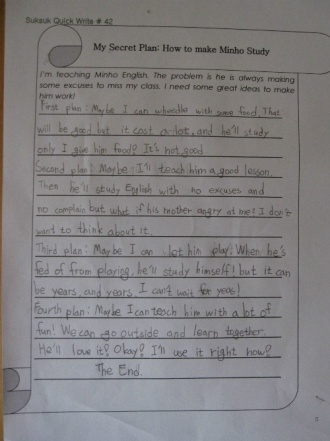 Suksuk Quick Write # 42
My Secret Plan: How to make Minho Study
I'm teaching Minho English. The problem is he is always making
some excuses to miss my class. I need some great ideas to make
him work!
First plan: Maybe I can wheedle with some food. That
will be good but it cost a-lot, and he'll study
only I give him food? It's not good
Second plan: Maybe I'll teach him a good lesson.
Then he'll study English with no excuses and
no complain but what if his mother angry at me? I don't
want to think about it.
Third plan: Maybe I can let him play. When he's
fed of from playing, he'll study himself! but it can
be years, and years. I can't wait for years!
Fourth plan: Maybe I can teach him with a lot of
fun! We can go outside and learn together.
He'll love it? Okay? I'll use it right now?
The End.